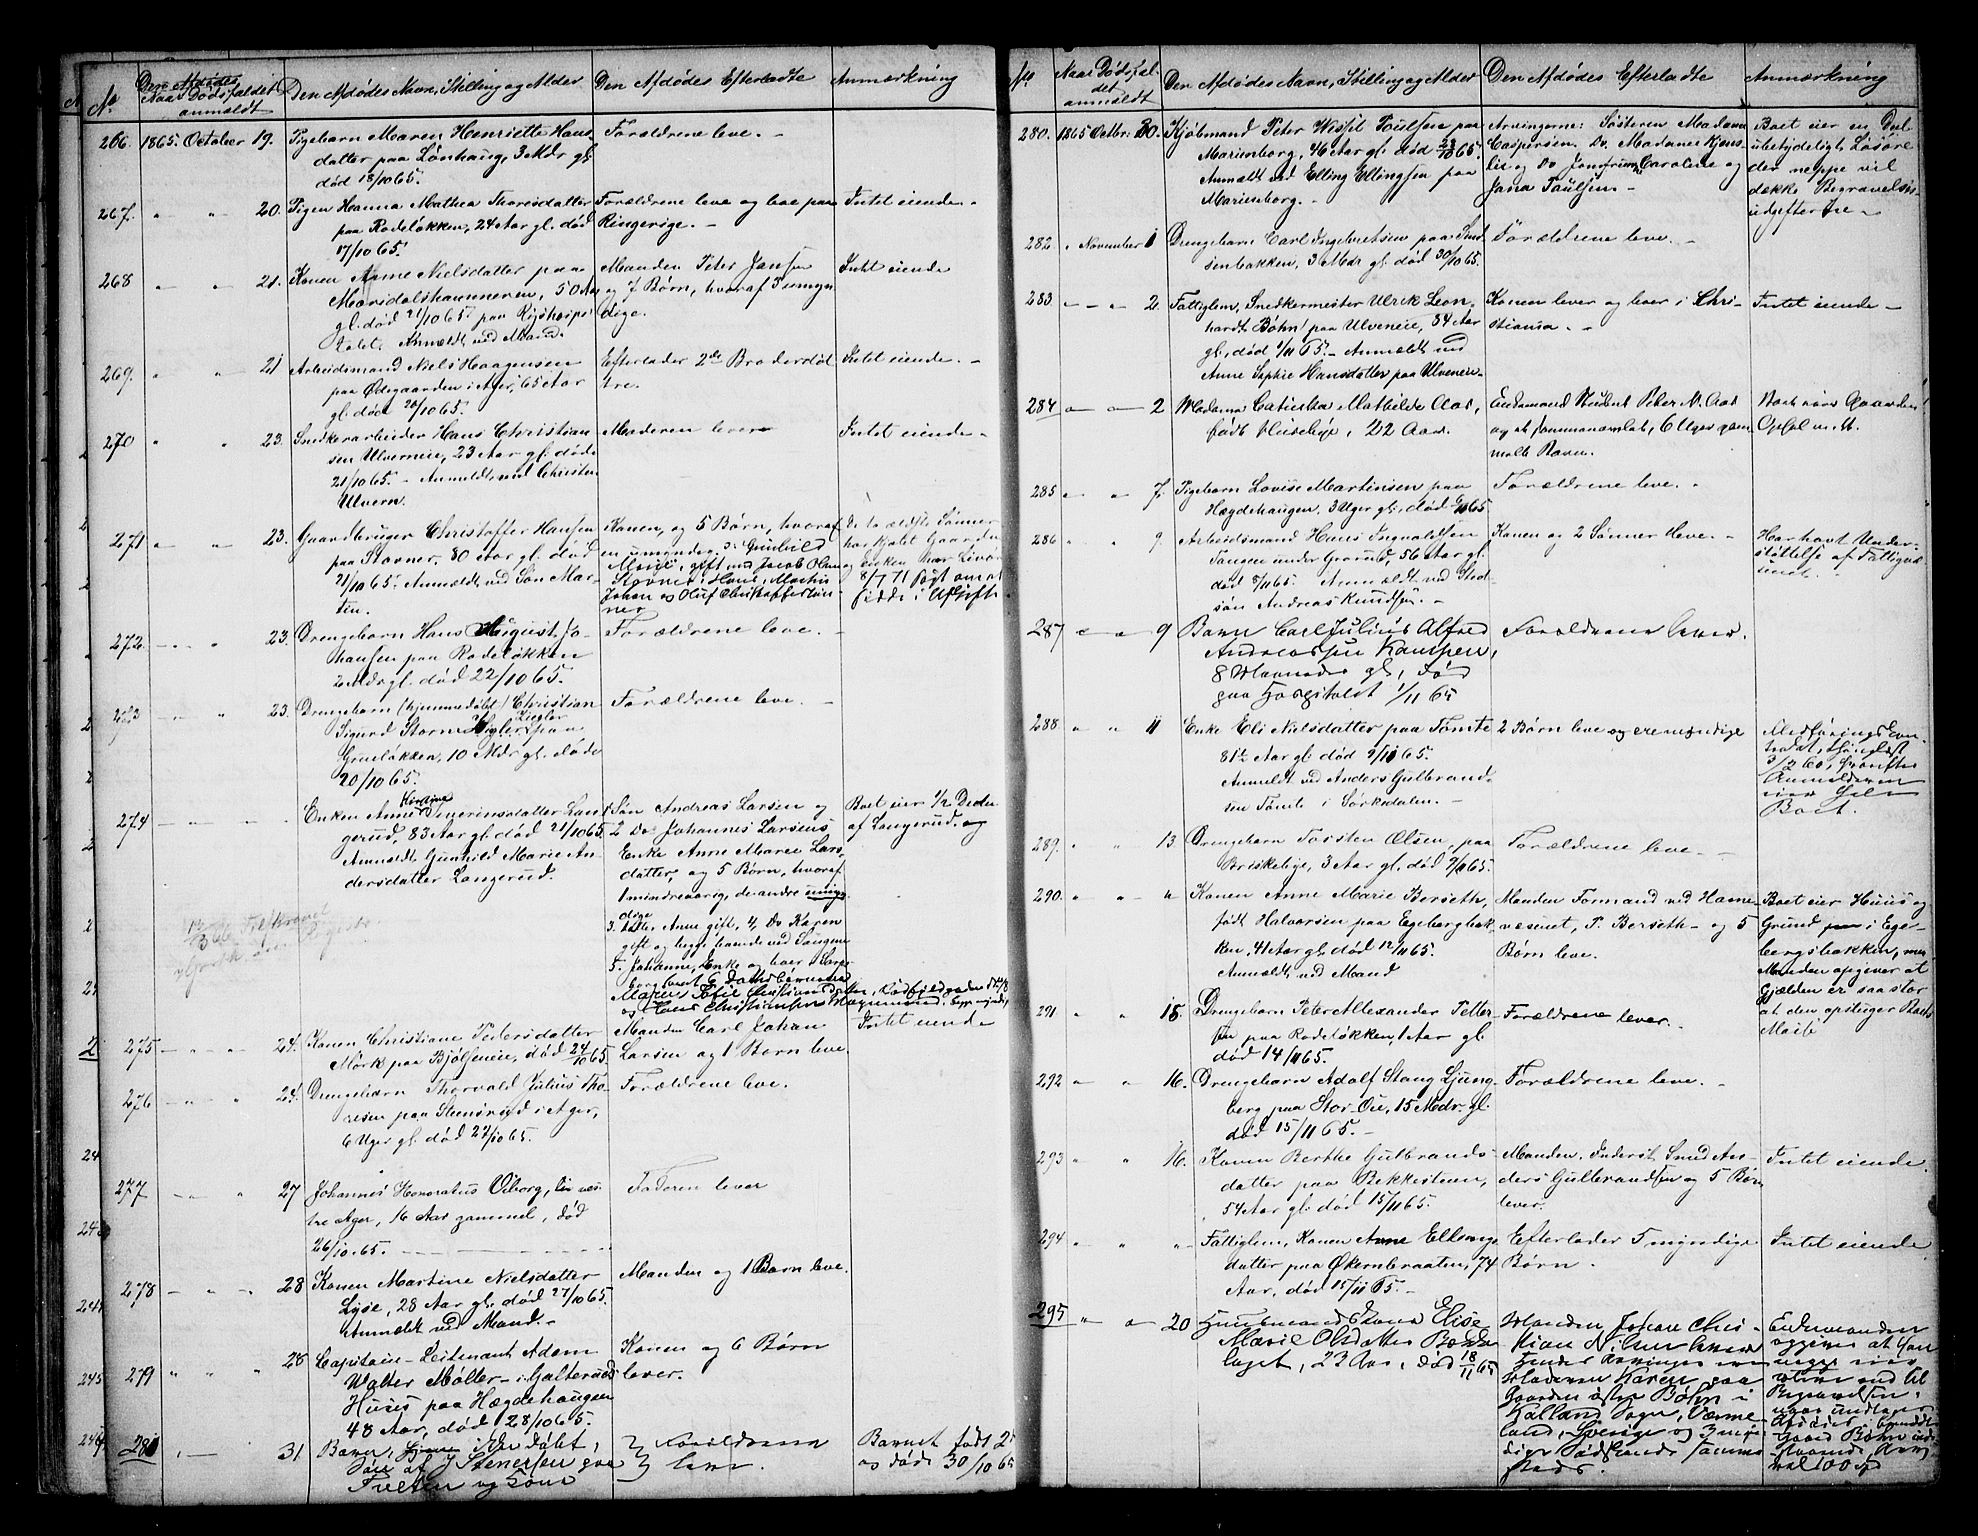 No.
Den Afdødes
Naar Dødsfaldet
anmeldt
Den Afdødes Navn, Stilling og Alder
Den Afdødes Efterladte
Anmærkning
266. 1865. October 19. Pigebarn Maren Henriette Hans-
datter paa Lønhaug, 3 Mdr gl.
død 18/10 65.
Forældrene leve. -
267. " " 20. Pigen Hanna Mathea Thorisdatter
paa Rodeløkken, 24 Aar gl. død
17/10 65.
Forældrene leve og boe paa
Ringerige. -
Intet eiende -
268 " " 21. Konen Anne Nielsdatter paa
Maridalshammeren, 50 Aar
gl. død 21/10 65 paa Rigshospi-
talet. Anmeldt ved Mand.
Manden Peter Jansen
og 7 Børn, hvoraf 5 umyn
dige.
Intet eiende
269. " " 21 Arbeidsmand Niels Haagensen
paa Ødegaarden i Aker, 65 Aar
gl. død 20/10 65.
Efterlader 2de Broderdøt
tre.
Intet eiende. -
270 " " 23. Snedkerarbeider Hans Christian-
sen Ulverneie, 23 Aar gl. døde
21/10 65. - Anmeldt ved Christen
Ulvern.
Moderen lever
Intet eiende -
271 " " 23. Gaardbruger Christoffer Hansen
paa Stovner, 80 Aar gl. død
21/10 65. Anmeldt ved Søn Mar-
tin.
Konen, og 5 Børn, hvoraf
en umyndig: Gunhild
Marie, gift med Jacob Olsen
Stovner, Hans, Martin
Johan og Oluf Christoffersen
De to ældste Sønner
har kjøbt Gaarden
og Enken har Livøre
272. " " 23. Drengebarn Hans August Jo-
hansen paa Rodeløkken
2 Mdr gl. død 22/10 65.
Forældrene leve. -
273 " " 23. Drengebarn (hjemmedøbt) Christian
Sigurd Storm Ziegler paa
Grünløkken, 10 Mdr gl. døde
20/10 65.
Forældrene leve. -
274 " " Enken Anne Kirstine
Lan-
gerud, 83 Aar gl. død 21/10 65
Anmeldt Gunhild Marie An-
dersdatter Langerud.
Søn Andreas Larsen og
2 Do Johannes Larsens
Enke Anne Marie Lars-
datter, og 5 Børn, hvoraf
1 mindreaarig, de andre umyn-
dige
3. Datter Anne gift, 4, Do Karen
gift og
5. Johanne, Enke og boer i Sarps-
borg
Boet eier 1/2 Deel
af Langerud. og
275 " " 24. Konen Christiane Pedersdatter
Mørk paa Bjølseneie, død 24/10 65.
Manden Carl Johan
Larsen og 1 Barn leve.
Intet eiende
276 " " 25. Drengebarn Thorvald Julius Tho-
resen paa Steensrud i Aker,
6 Uger gl. død 22/10 65.
Forældrene leve.
277 " " 27 Johannes Honoratus Viborg,
tre Aker, 16 Aar gammel, død
26/10.65.
Faderen lever
278 " " 28 Konen Martine Nielsdatter
Lyse, 28 Aar gl. død 27/10 65.
Anmeldt ved Mand. -
Manden og 1 Barn leve.
279 " " 28 Capitain-Leitenant Adam
Walter Møller - i Galteruds
Huus paa Hægdehaugen
48 Aar, død 28/10 65.
Konen og 6 Børn
lever.
280 " 31 Barn, ikke døbt,
Søn af J Stenersen paa
Tveten og Kone
Forældrene
leve.
Barnet født 2
og døde 30/10 65
No.
Naar Dødsfal-
det
anmeldt
Den Afdødes Navn, Stilling og Alder
Den Afdødes Efterladte
Anmærkning
280. 1865 Octbr: 30. Kjøbmand Peter Wessel Poulsen paa
Marienborg, 46 Aar gl. død 23/10 65.
Anmeldt ved Elling Ellingsen paa
Marienborg. -
Arvingerne: Søsteren Madame
Caspersen. Do. Madame Kjens-
lie og Do Jomfruen Caroline og
Jana Poulsen. -
Boet eier en Deel
ubetydeligt Løsøre
der neppe vil
dække Begravelses-
udgifterne -
282. " November 1 Drengebarn Carl Ingebretsen paa Smed
senbakken, 3 Mdr gl. død 30/10 65.
Forældrene leve. -
283 " " 2. Fattiglem, Snedkermester Ulrik Leon-
hardt Bøhn paa Ulveneie, 84 Aar
gl., død 1/11 65. - Anmeldt ved
Anne Sophie Hansdatter paa Ulveneie -
Konen lever og boer i Chri-
stiania. -
Intet eiende -
284 " " 2 Madame Catinka Mathilde Aas,
født Huseby, 22 Aar.
Enkemand Peter M. Aas
og et 6 Uger gam-
melt Barn.
Boet eier Gaarden
285 " " 7. Pigebarn Lovise Martinsen paa
Hægdehaugen, 3 Uger gl., død 6/11 65
Forældrene leve. -
286 " " 9 Arbeidsmand Hans Ingvaldsen
Tangen under Grorud, 56 Aar gl.
død 8/11 65. Anmeldt ved Sted-
søn Andreas Knudsen. -
Konen og 2 Sønner lleve. -
Har havt Under-
støttelse af Fattigvæ
senet. -
287 " " 9 Barn Carl Julius Alfred
Andreassen Kampen,
8 Maaneder gl., død
paa Hospitalet 1/11 65
Forældrene lever.
288 " " 11 Enke Eli Nielsdatter paa Tømte
81½ Aar gl. død 9/11 65.
Anmeldt ved Anders Gulbrand-
sen Tømte i Sørkedalen. -
2 Børn leve og ere myndige
Boet.
289. " " 13 Drengebarn Torsten Olsen, paa
Briskebye, 3 Aar gl. død 9/11 65.
Forældrene leve. -
290. " " " Konen Anne Marie Berseth,
født Halvorsen paa Egebergbak-
ken, 41 Aar gl. død 12/11 65.
Anmeldt ved Mand
Manden Formand ved Havne-
væsenet, P. Berseth - og 5
Børn leve.
Boet eier Huus og
Grund i Ege-
bergsbakken, men
Manden opgiver at
Gjælden er saa stor
at den opsluger Boets
Masse
291 " " 15. Drengebarn Peter Alexander Petter-
sen paa Rodeløkken, 1 Aar gl.
død 14/11 65.
Forældrene lever. -
292 " " 16. Drengebarn Adolf Stang Ljung-
berg paa Stor-Øie, 15 Mdr. gl.
død 15/11 65. -
Forældrene leve. -
293 " " 16. Konen Berthe Gulbrands-
datter paa Bekkestuen,
54 Aar gl. død 15/11 65.
Manden, Inderst Smed An-
ders Gulbrandsen og 5 Børn
lever.
Intet eiende.
294 " " " Fattiglem, Konen Anne Ellings-
datter paa Økernbraaten, 74
Aar, død 15/11 65. -
Efterlader 5 myndige
Børn.
Intet eiende.
295 " " 20 Huusmands Kone Elise
Marie Olsdatter Bække-
laget, 23 Aar, død 18/11 65
Manden Johan Chris-
tian Nilsen lever
Hendes Arvinger ere
Moderen Karen paa
Gaarden østre Bøhn i
Kalland Sogn, Værme-
land, Sverige og
Sødskende sammes
steds.
Enkemanden
opgiver at han